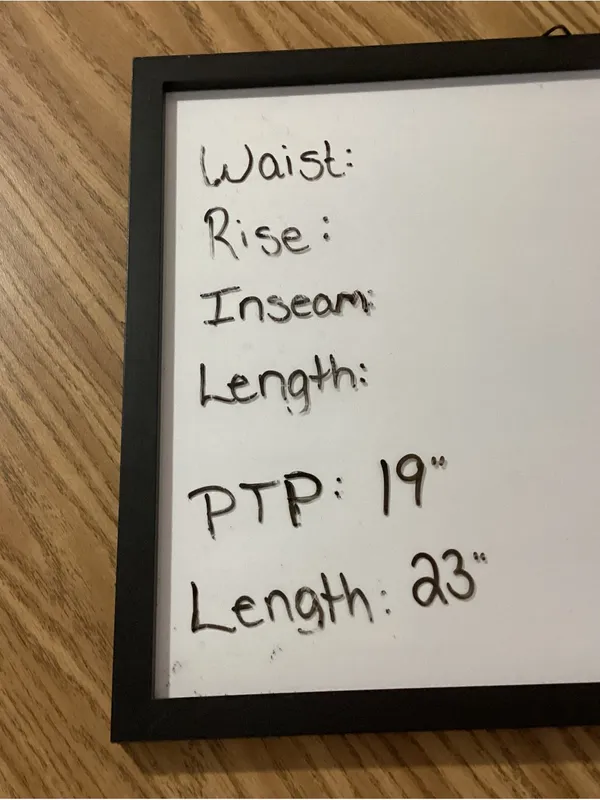 Waist:
Rise:
Inseam:
Length:
PTP: 19"
Length: 23"